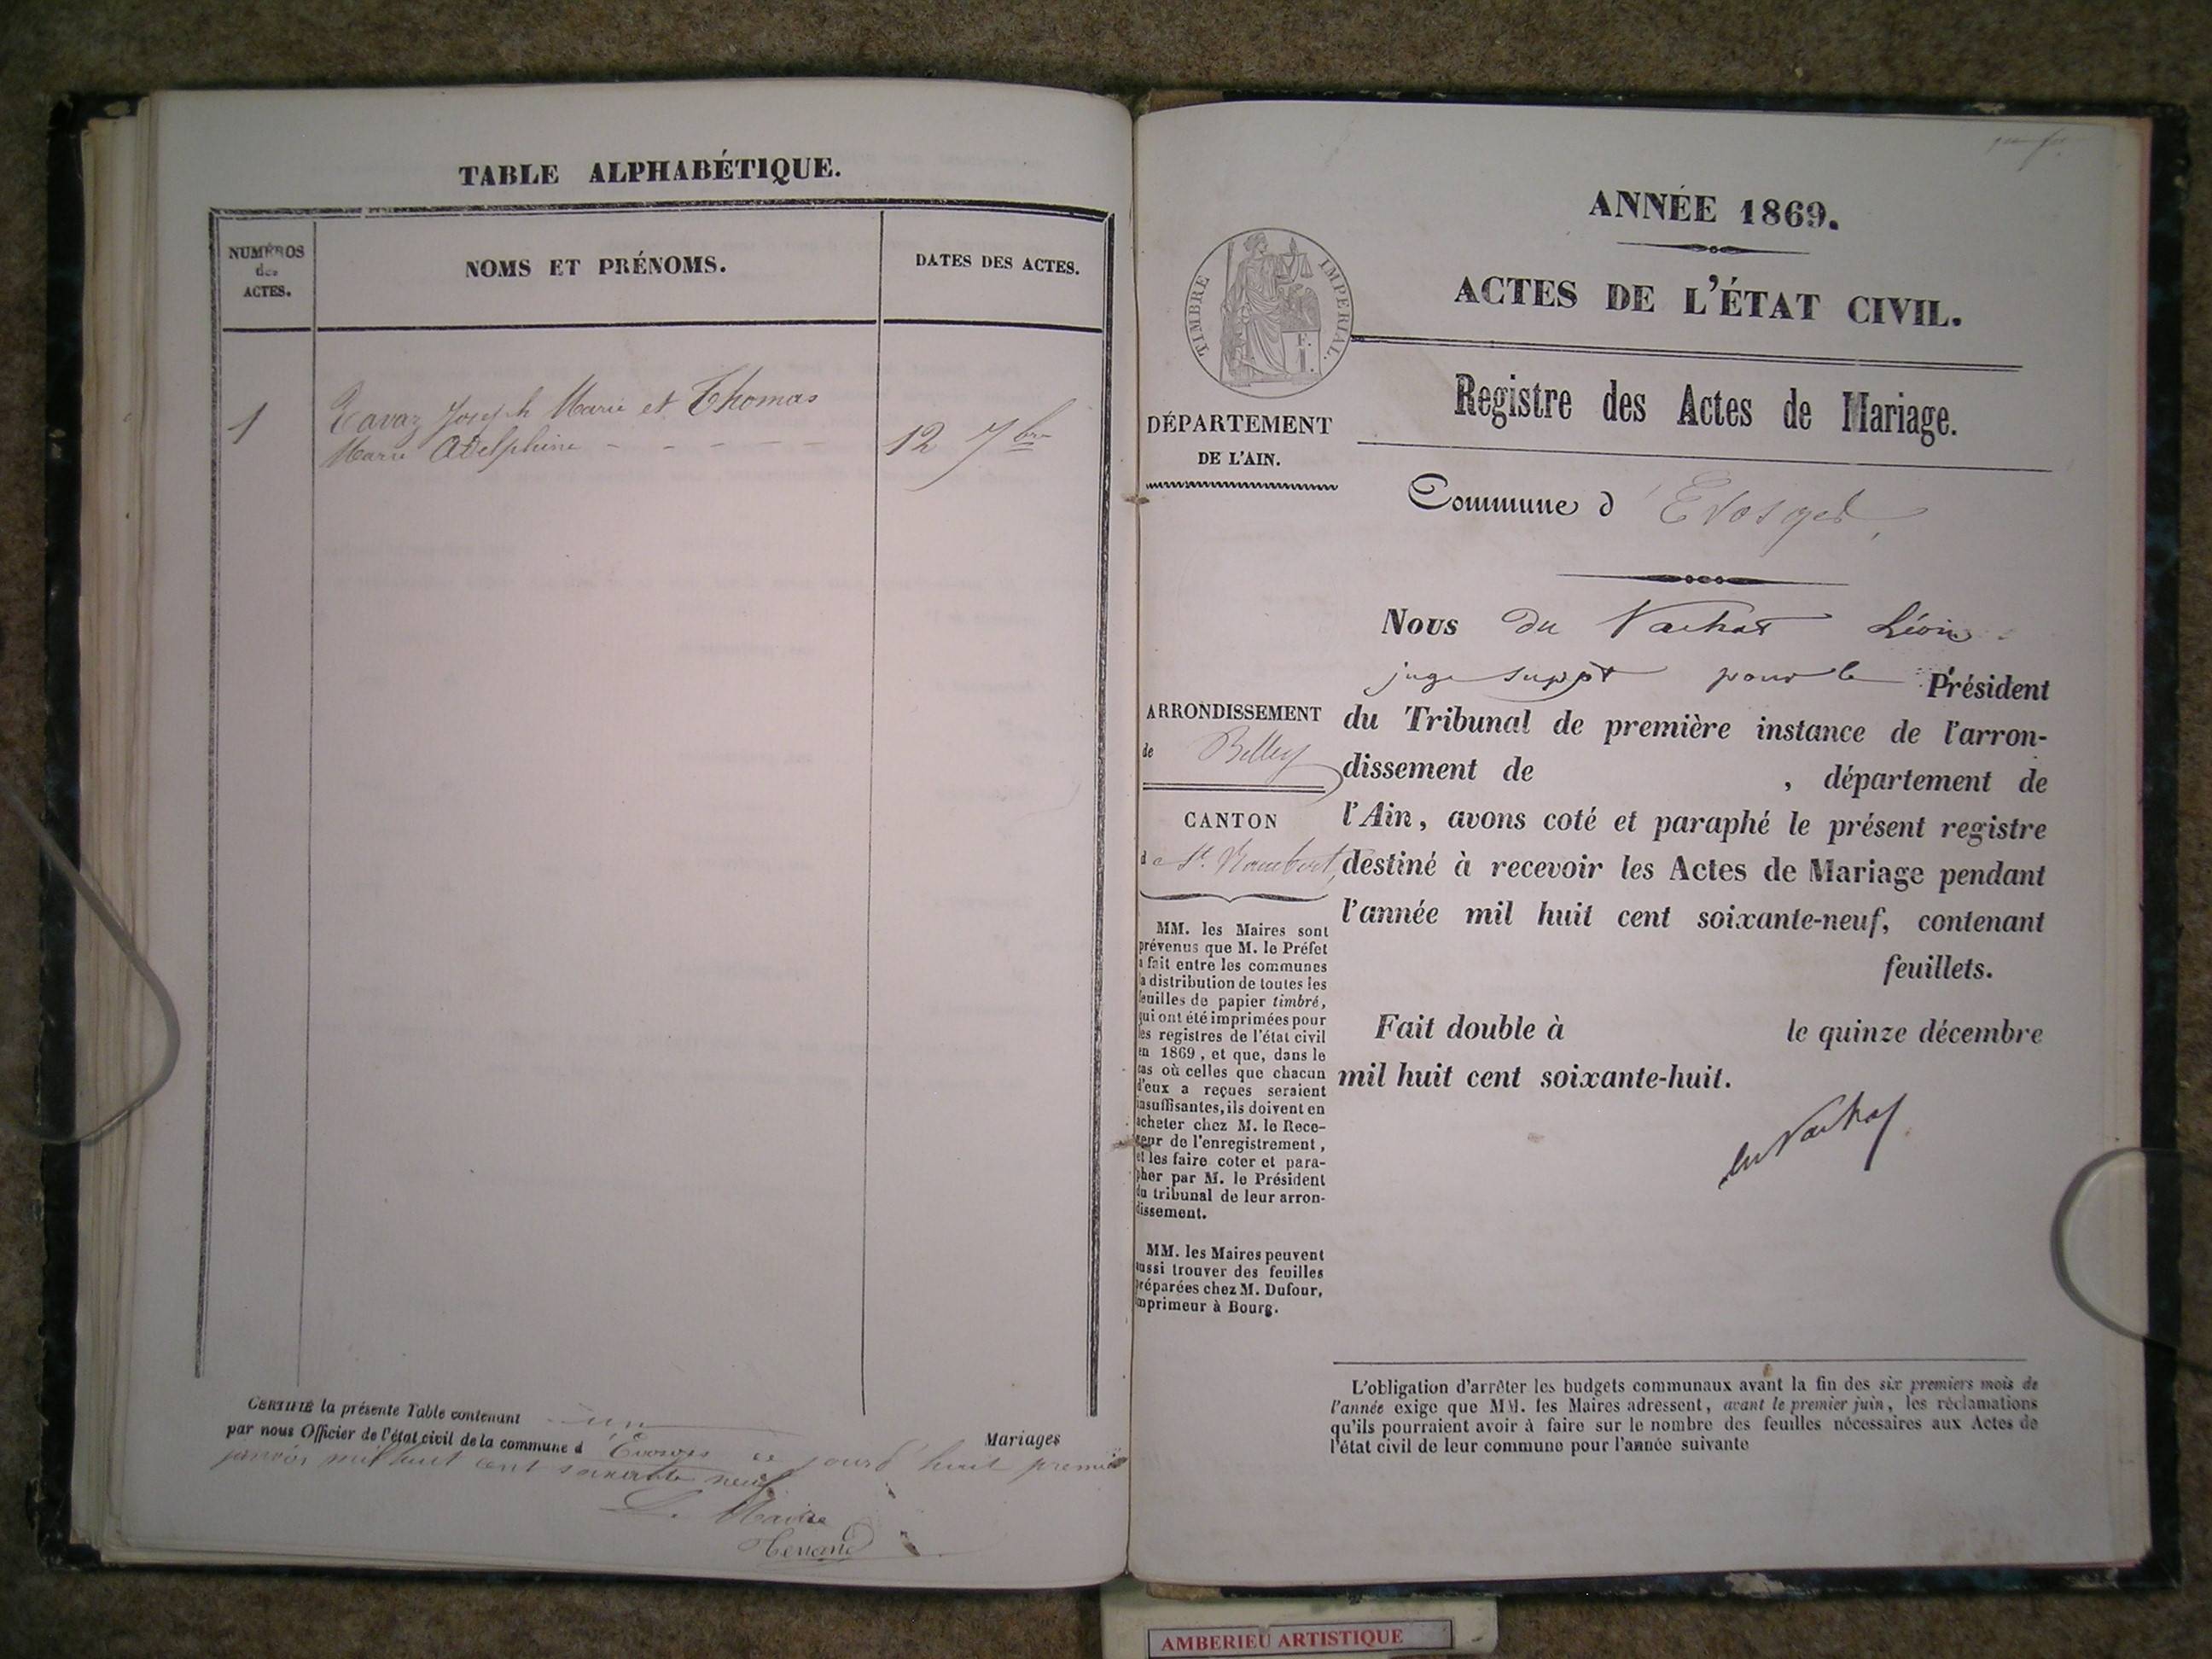 TABLE ALPHABÉTIQUE.
NUMÉROS
des
ACTES.
NOMS ET PRÉNOMS.
DATES DES ACTES.
1
Joseph Marie et Thomas
Marie Adelphine - - - - -
12 7bre
CERTIFIÉ la présente Table contenant un Mariages
par nous Officier de l'état civil de la commune d' Evosges ce jourd'huit premier
janvier mil huit cent soixante neuf
Le Maire
ANNÉE 1869.
ACTES DE L'ÉTAT CIVIL.
TIMBRE IMPERIAL.
F.
1.
Registre des Actes de Mariage.
DÉPARTEMENT
DE L'AIN.
Commune d' Evosges,
Nous du Vachat Léon
juge suppt pour le Président
du Tribunal de première instance de l'arron-
dissement de , département de
l'Ain, avons coté et paraphé le présent registre
destiné à recevoir les Actes de Mariage pendant
l'année mil huit cent soixante-neuf, contenant
feuillets.
Fait double à le quinze décembre
mil huit cent soixante-huit.
du Vachat
ARRONDISSEMENT
de Belley
CANTON
de St. Rambert,
MM. les Maires sont
prévenus que M. le Préfet
a fait entre les communes
la distribution de toutes les
feuilles de papier timbré,
qui ont été imprimées pour
les registres de l'état civil
en 1869, et que, dans le
cas où celles que chacun
d'eux a reçues seraient
insuffisantes, ils doivent en
acheter chez M. le Rece-
veur de l'enregistrement,
et les faire coter et para-
pher par M. le Président
du tribunal de leur arron-
dissement.
MM. les Maires peuvent
aussi trouver des feuilles
préparées chez M. Dufour,
imprimeur à Bourg.
L'obligation d'arrêter les budgets communaux avant la fin des six premiers mois de
l'année exige que MM. les Maires adressent, avant le premier juin, les réclamations
qu'ils pourraient avoir à faire sur le nombre des feuilles nécessaires aux Actes de
l'état civil de leur commune pour l'année suivante
AMBERIEU ARTISTIQUE